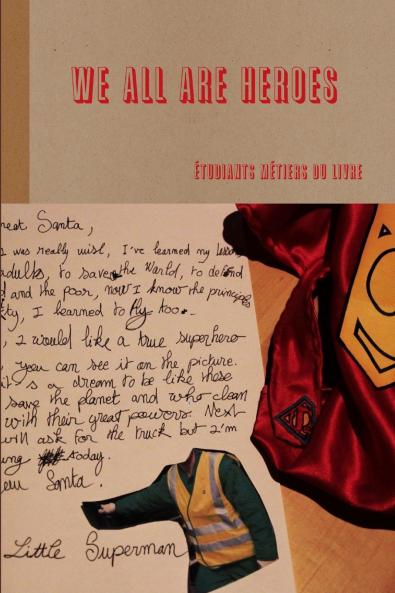 WE ALL ARE HEROES
ÉTUDIANTS MÉTIERS DU LIVRE
Santa,
was really wise, I've learned my lesson
adults, to save the World, to defend
and the poor, now I know the principles
I learned to fly too.
I would like a true superhero
you can see it on the picture.
it's a dream to be like these
save the planet and who clean
with their great powers. Next
will ask for the truck but I'm
today.
Santa.
Little Superman